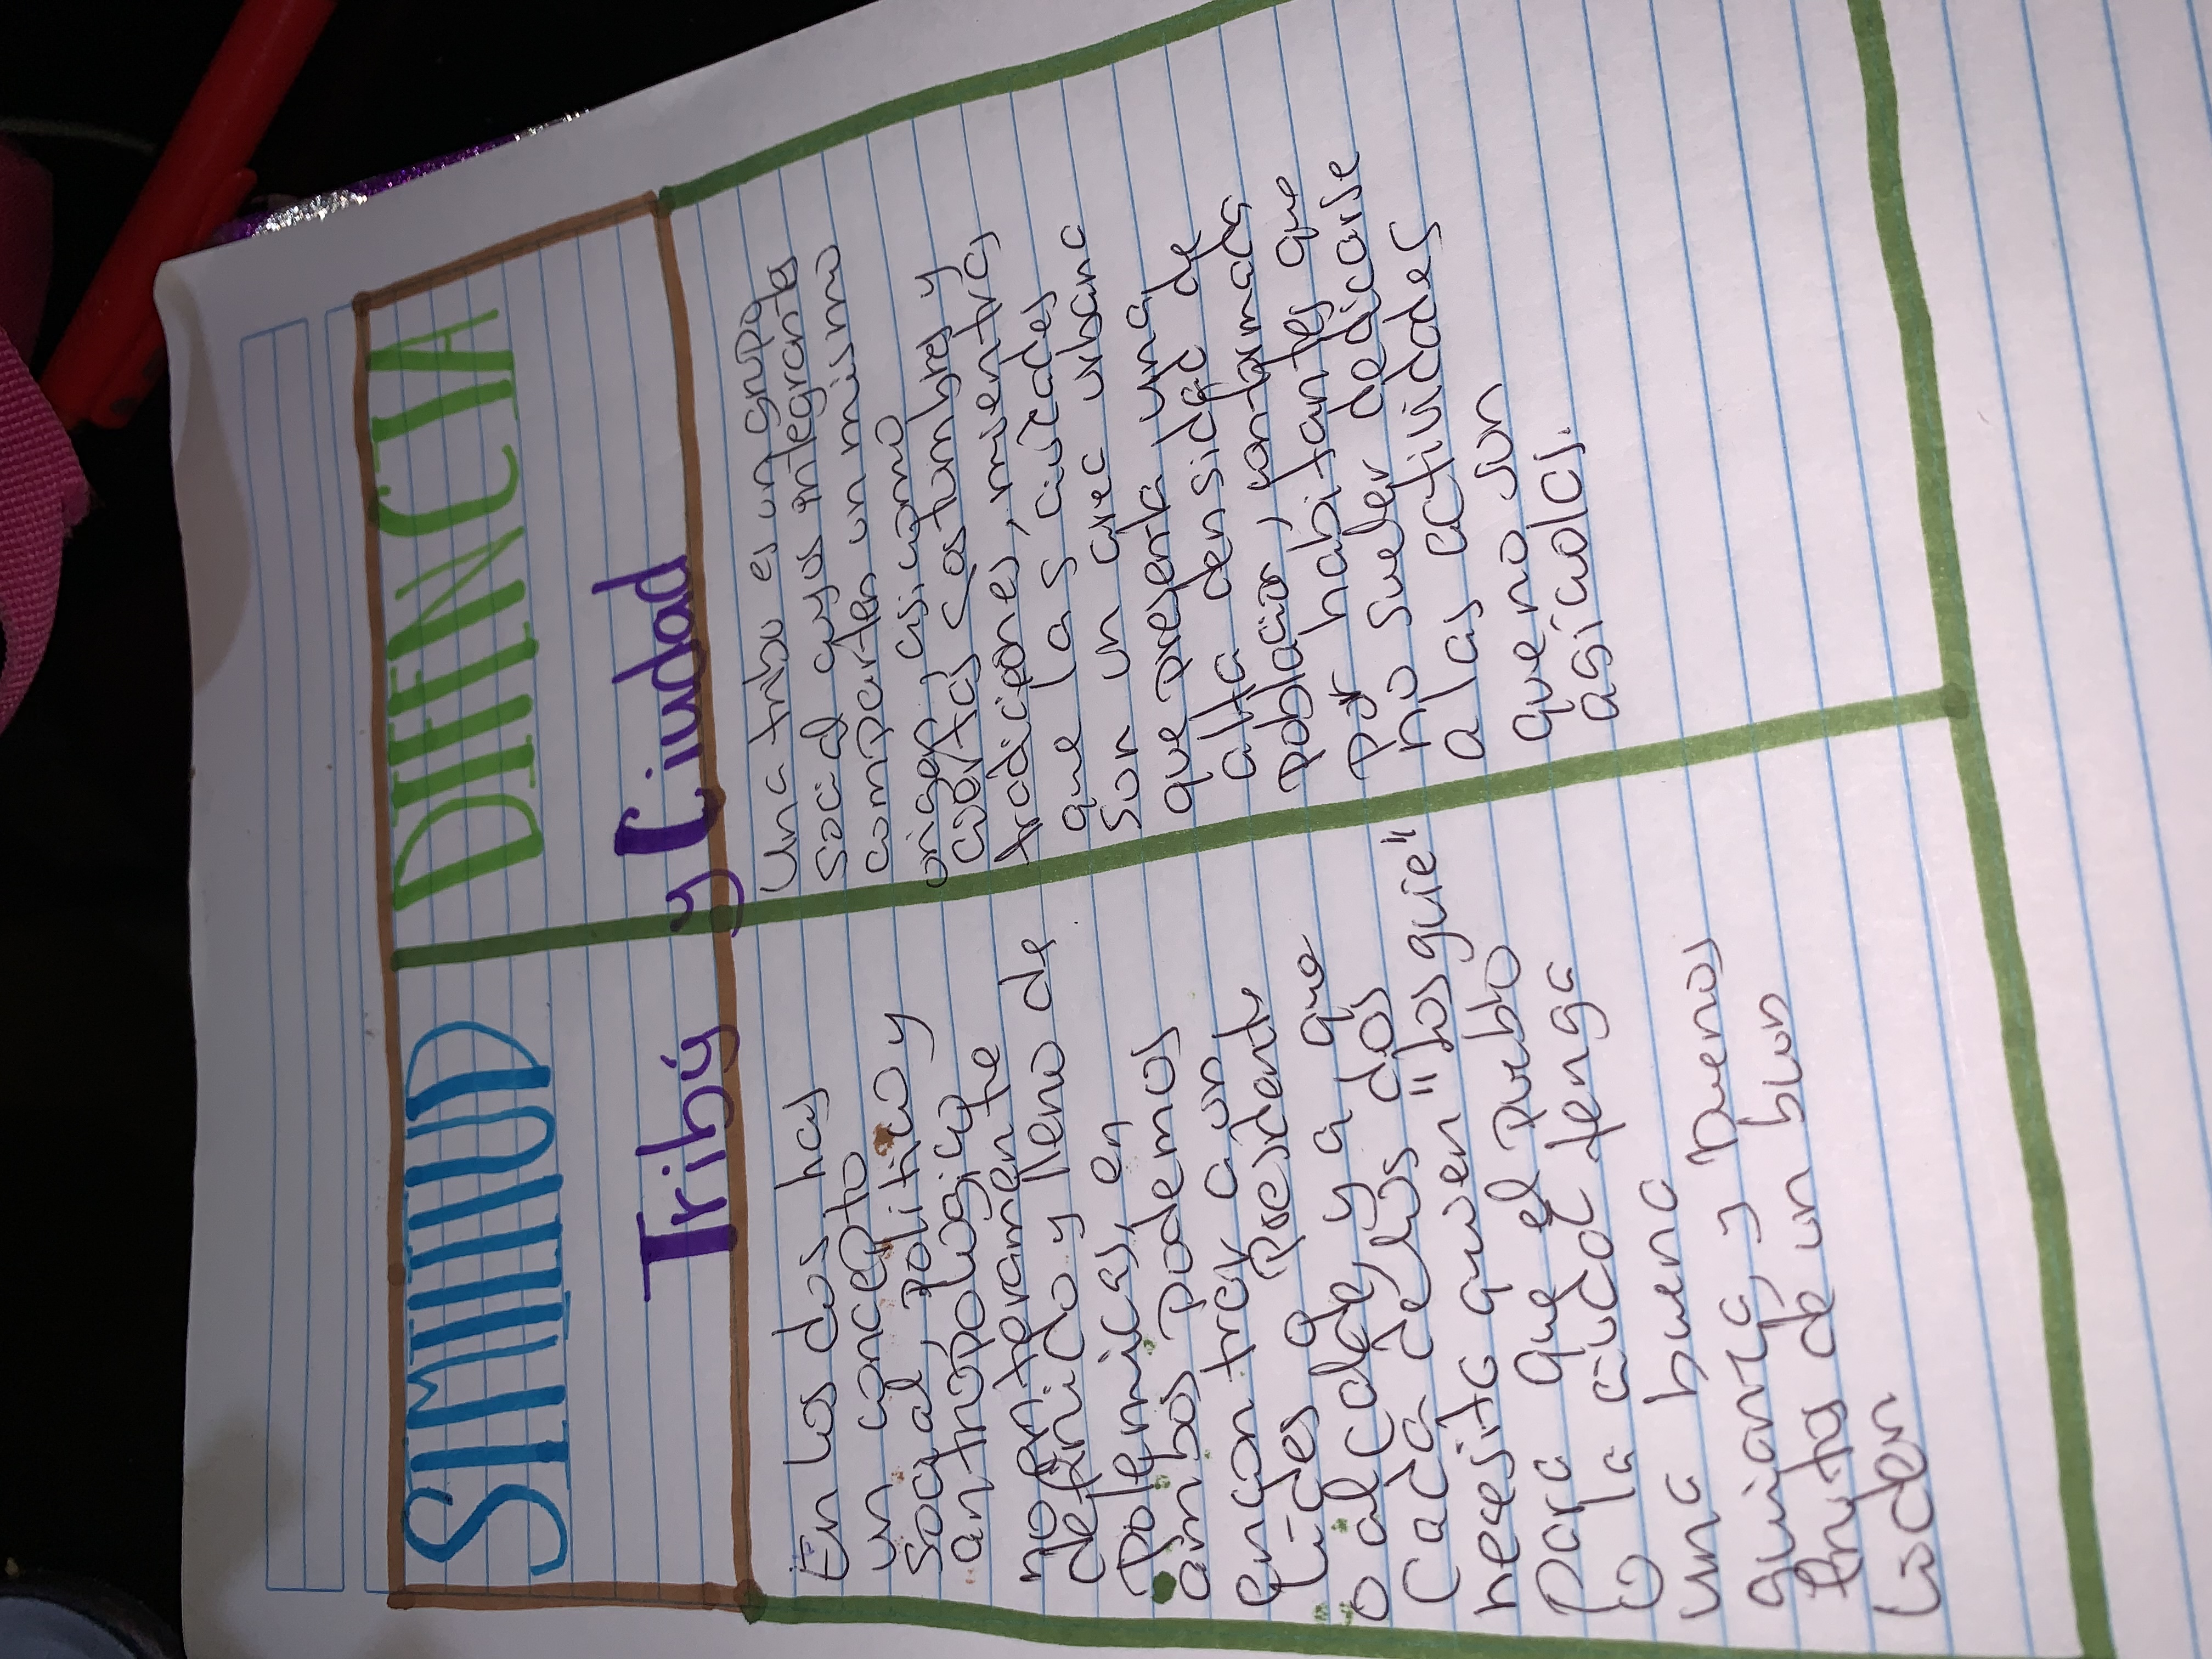 SIMIIIUD
DIFINCIA
Tribú y Ciudad
En los dos hay
un concepto
social, politico y
antropologico
no enteramente
definido y lleno de
Polemicas, en
ambos podemos
encontrar a un
Lider o Presidente
o alcalde y a que
Cada de los dos
necesita quien "los guie"
Para que el pueblo
o la ciudad tenga
una buena
guianza y buenos
frutos de un buen
Lider
Una tribu es un grupo
social cuyos integrantes
comparten un mismo
origen, asi como
ciertas costumbres y
tradiciones, mientras
que las ciudades
son un area urbana
que presenta una
alta densidad de
poblacion, conformada
por habitantes que
no suelen dedicarse
a las actividades
que no son
agicolas.